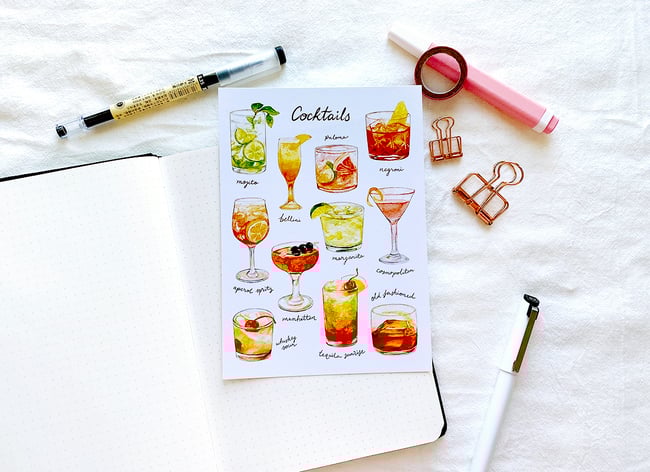 Cocktails
mojito
bellini
paloma
negroni
aperol spritz
manhattan
margarita
cosmopolitan
whiskey
sour
tequila sunrise
old fashioned